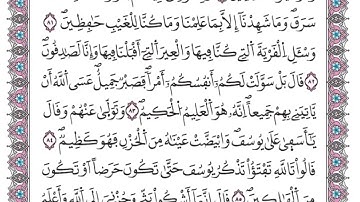 سَرَقَ وَمَا شَهِدْنَآ إِلَّا بِمَا عَلِمْنَا وَمَا كُنَّا لِلْغَيْبِ حَٰفِظِينَ ۝٨١
وَسْـَٔلِ ٱلْقَرْيَةَ ٱلَّتِى كُنَّا فِيهَا وَٱلْعِيرَ ٱلَّتِىٓ أَقْبَلْنَا فِيهَا وَإِنَّا لَصَٰدِقُونَ
۝٨٢ قَالَ بَلْ سَوَّلَتْ لَكُمْ أَنفُسُكُمْ أَمْرًا فَصَبْرٌ جَمِيلٌ عَسَى ٱللَّهُ أَن
يَأْتِيَنِى بِهِمْ جَمِيعًا إِنَّهُۥ هُوَ ٱلْعَلِيمُ ٱلْحَكِيمُ ۝٨٣ وَتَوَلَّىٰ عَنْهُمْ وَقَالَ
يَٰٓأَسَفَىٰ عَلَىٰ يُوسُفَ وَٱبْيَضَّتْ عَيْنَاهُ مِنَ ٱلْحُزْنِ فَهُوَ كَظِيمٌ ۝٨٤
قَالُوا۟ تَٱللَّهِ تَفْتَؤُا۟ تَذْكُرُ يُوسُفَ حَتَّىٰ تَكُونَ حَرَضًا أَوْ تَكُونَ
مِنَ ٱلْهَٰلِكِينَ ۝٨٥ قَالَ إِنَّمَآ أَشْكُوا۟ بَثِّى وَحُزْنِىٓ إِلَى ٱللَّهِ وَأَعْلَمُ